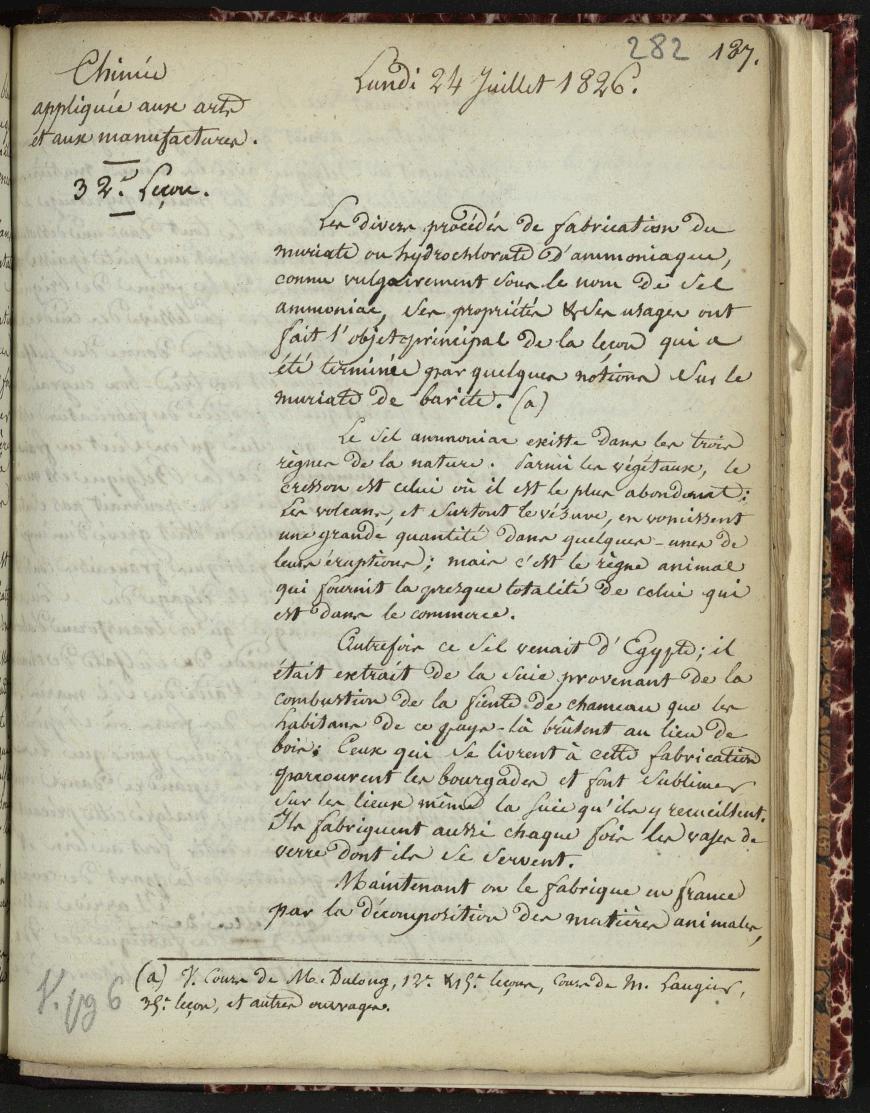 282 137.
Chimie
appliquée aux arts
et aux manufactures.
32e. Leçon.
Lundi 24 Juillet 1826.
Les divers procédés de fabrication du
muriate ou hydrochlorate d'ammoniaque,
connu vulgairement sous le nom de Sel
ammoniac, ses propriétés & ses usages ont
fait l'objet principal de la leçon qui a
été terminée par quelques notions sur le
muriate de barite. (a)
Le Sel ammoniac existe dans les trois
règnes de la nature. Parmi les végétaux, le
cresson est celui où il est le plus abondant;
Les volcans, et surtout le vésuve, en vomissent
une grande quantité dans quelques-unes de
leurs éruptions; mais c'est le règne animal
qui fournit la presque totalité de celui qui
est dans le commerce.
Autrefois ce Sel venait d'Egypte; il
était extrait de la suie provenant de la
combustion de la fiente de chameau que les
habitans de ce pays-là brûlent au lieu de
bois; Ceux qui se livrent à cette fabrication
parcourent les bourgades et font sublimer
sur les lieux même la suie qu'ils y recueillent.
Ils fabriquent aussi chaque fois les vases de
verre dont ils se servent.
Maintenant on le fabrique en france
par la décomposition des matières animales,
(a) V. Cours de M. Dulong, 12e. & 15e. leçons, Cours de M. Laugier,
35e. leçon, et autres ouvrages.
V. pg 6